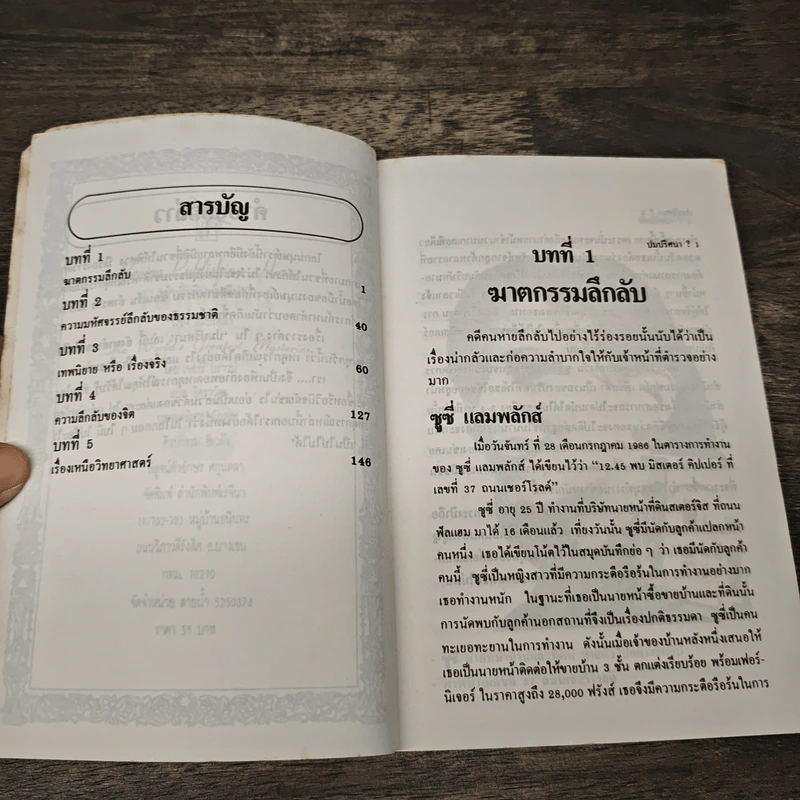 สารบัญ
บทที่ 1
ฆาตกรรมลึกลับ 1
บทที่ 2
ความมหัศจรรย์ลึกลับของธรรมชาติ 40
บทที่ 3
เทพนิยาย หรือ เรื่องจริง 60
บทที่ 4
ความลึกลับของจิต 127
บทที่ 5
เรื่องเหนือวิทยาศาสตร์ 146
ปมปริศนา ? 1
บทที่ 1
ฆาตกรรมลึกลับ
คดีคนหายลึกลับไปอย่างไร้ร่องรอยนั้นนับได้ว่าเป็น
เรื่องน่ากลัวและก่อความลำบากใจให้กับเจ้าหน้าที่ตำรวจอย่าง
มาก
ซูซี่ แลมพลักส์
เมื่อวันจันทร์ ที่ 28 เดือนกรกฎาคม 1986 ในตารางการทำงาน
ของ ซูซี่ แลมพลักส์ ได้เขียนไว้ว่า “12.45 พบ มิสเตอร์ คิปเปอร์ ที่
เลขที่ 37 ถนนเชอร์โรลด์”
ซูซี่ อายุ 25 ปี ทำงานที่บริษัทนายหน้าที่ดินสเตอร์จิส ที่ถนน
ฟัลแฮม มาได้ 16 เดือนแล้ว เที่ยงวันนั้น ซูซี่มีนัดกับลูกค้าแปลกหน้า
คนหนึ่ง เธอได้เขียนโน้ตไว้ในสมุดบันทึกย่อ ๆ ว่า เธอมีนัดกับลูกค้า
คนนี้ ซูซี่เป็นหญิงสาวที่มีความกระตือรือร้นในการทำงานอย่างมาก
เธอทำงานหนัก ในฐานะที่เธอเป็นนายหน้าซื้อขายบ้านและที่ดินนั้น
การนัดพบกับลูกค้านอกสถานที่จึงเป็นเรื่องปกติธรรมดา ซูซี่เป็นคน
ทะเยอทะยานในการทำงาน ดังนั้นเมื่อเจ้าของบ้านหลังหนึ่งเสนอให้
เธอเป็นนายหน้าติดต่อให้ขายบ้าน 3 ชั้น ตกแต่งเรียบร้อย พร้อมเฟอร์-
นิเจอร์ ในราคาสูงถึง 28,000 ฟรังส์ เธอจึงมีความกระตือรือร้นในการ